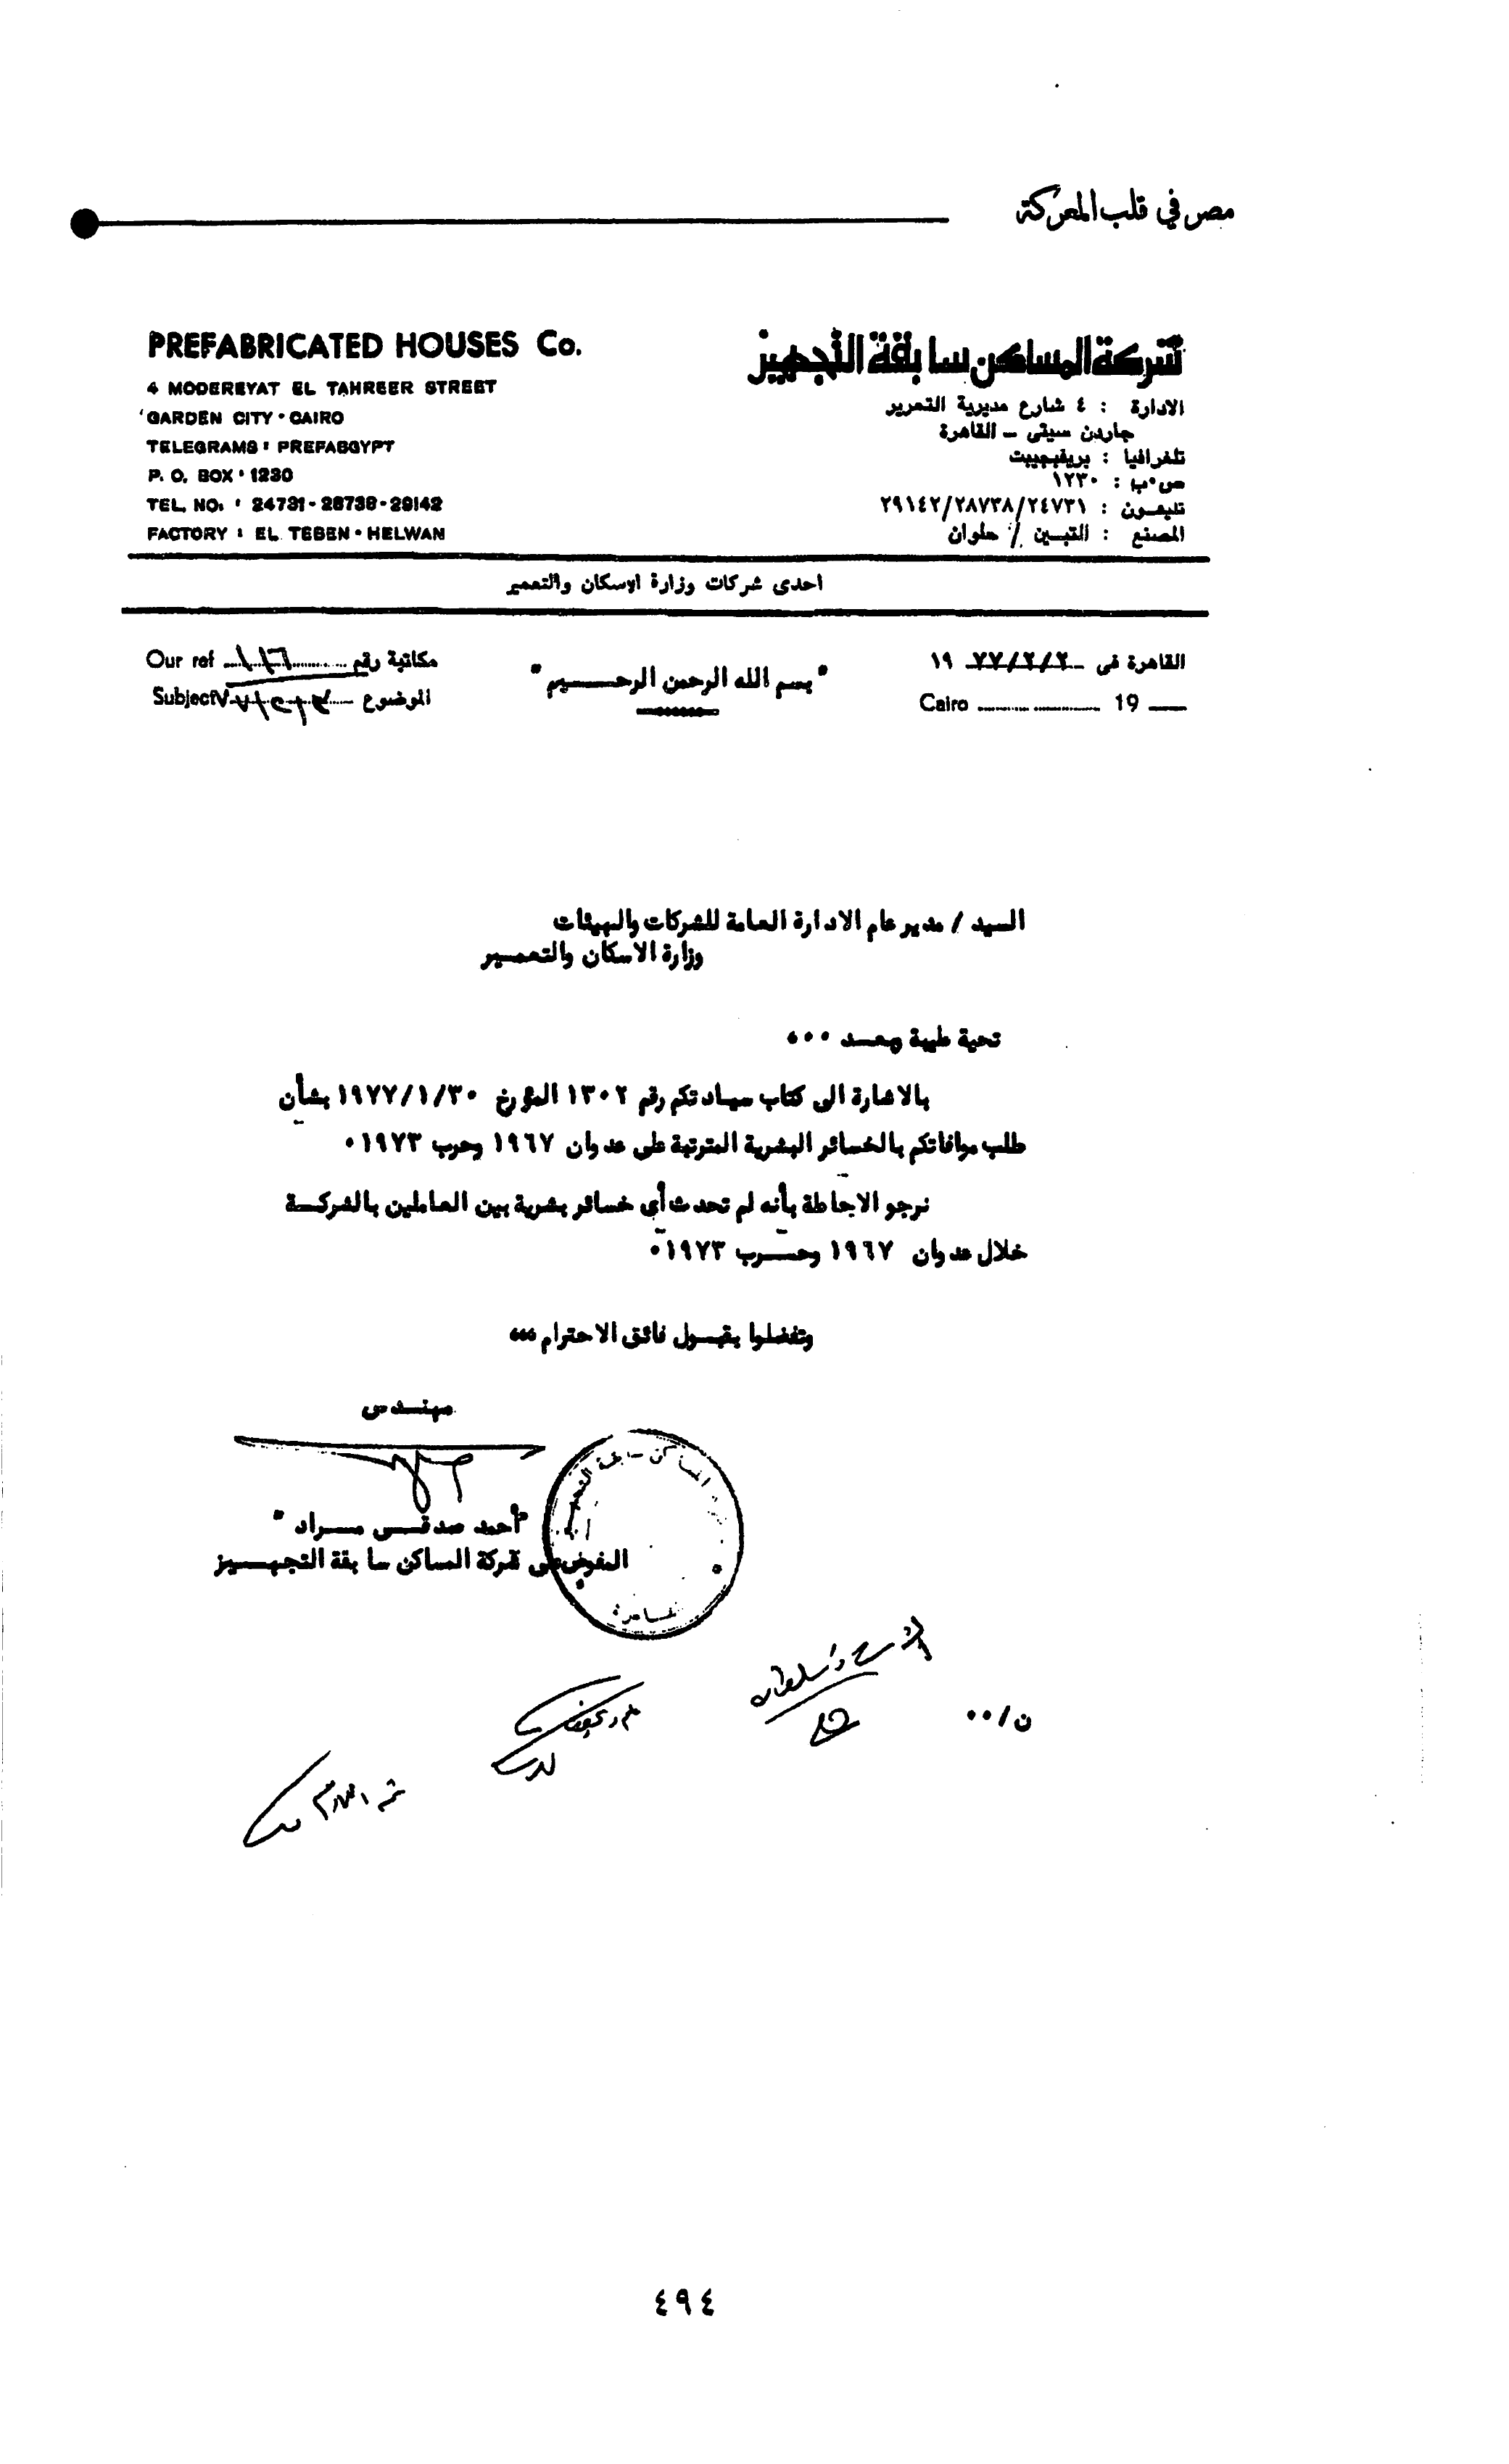 مصر في قلب المعركة
PREFABRICATED HOUSES Co.
4 MODEREYAT EL TAHREER STREET
GARDEN CITY · CAIRO
TELEGRAMS : PREFABGYPT
P. O. BOX : 1230
TEL. NO. : 24731 - 28738 - 29142
FACTORY : EL TEBEN · HELWAN
شركة المساكن سابقة التجهيز
الادارة : ٤ شارع مديرية التحرير
جاردن سيتى – القاهرة
تلغرافيا : بريفيجيبت
ص.ب : ١٢٣٠
تليفون : ٢٩١٤٢/٢٨٧٣٨/٢٤٧٣١
المصنع : التبين / حلوان
احدى شركات وزارة الاسكان والتعمير
القاهرة فى ٧٧/٢/٢ ١٩
Cairo 19
" بسم الله الرحمن الرحـــــيم "
Our ref ١١٦ مكاتبة رقم
Subject الموضوع
السيد / مدير عام الادارة العامة للشركات والهيئات
وزارة الاسكان والتعمـــير
تحية طيبة وبعـــد ٠٠٠
بالاشارة الى كتاب سيادتكم رقم ١٣٠٢ المؤرخ ١٩٧٧/١/٣٠ بشأن
طلب موافاتكم بالخسائر البشرية المترتبة على عدوان ١٩٦٧ وحرب ١٩٧٣ ٠
نرجو الاحاطة بأنه لم تحدث أى خسائر بشرية بين العاملين بالشركـــة
خلال عدوان ١٩٦٧ وحـــرب ١٩٧٣ ٠
وتفضلوا بقبـــول فائق الاحترام ،،،
مهنـــدس
" أحمد صدقـــى مـــراد "
المفوض على شركة المساكن سابقة التجهـــــيز
ن/٠٠
٤٩٤